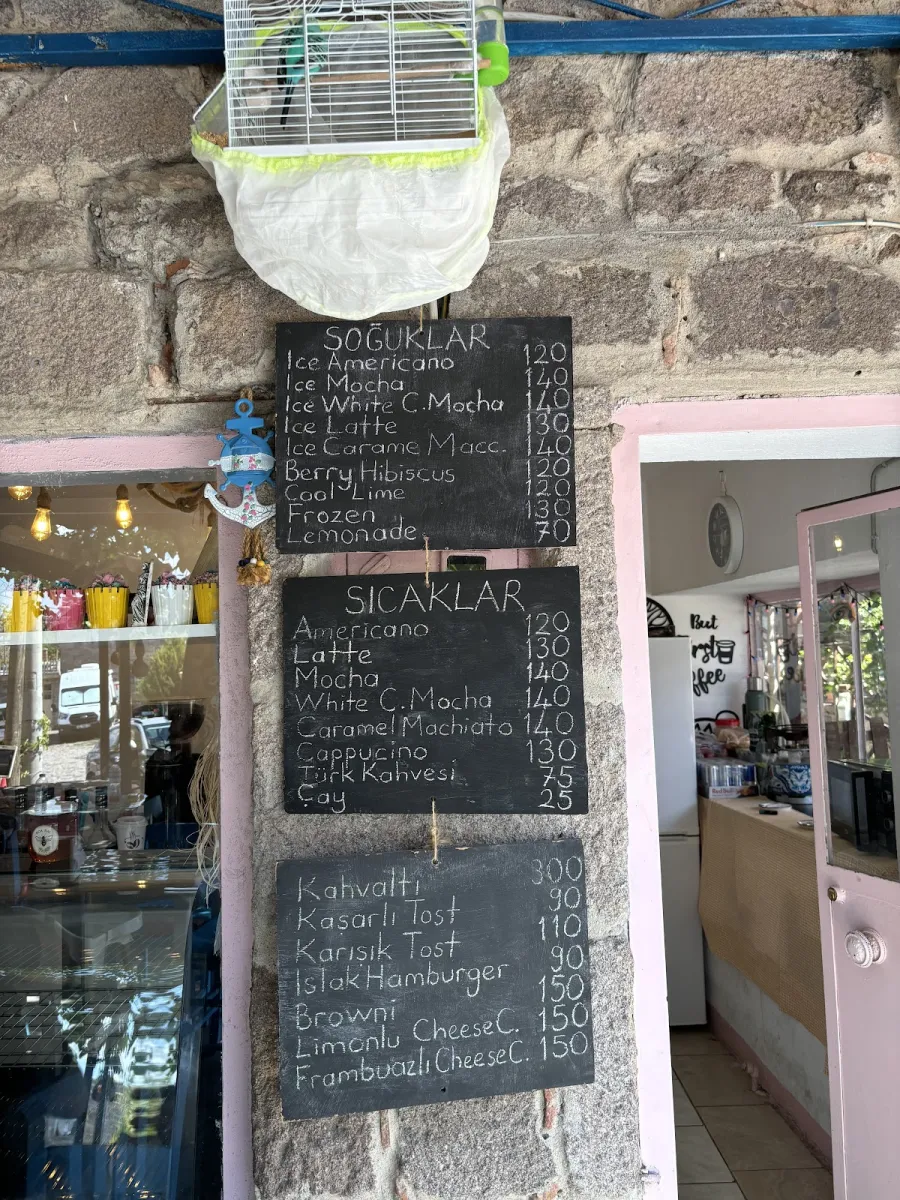 SOĞUKLAR
Ice Americano 120
Ice Mocha 140
Ice White C.Mocha 140
Ice Latte 130
Ice Carame Macc. 140
Berry Hibiscus 120
Cool Lime 120
Frozen 130
Lemonade 70
SICAKLAR
Americano 120
Latte 130
Mocha 140
White C.Mocha 140
Caramel Machiato 140
Cappucino 130
Türk Kahvesi 75
Çay 25
Kahvaltı 300
Kasarlı Tost 90
Karısık Tost 110
Islak Hamburger 90
Browni 150
Limonlu CheeseC. 150
Frambuazlı CheeseC. 150
But